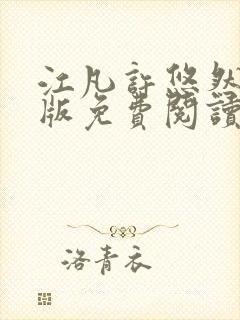 江凡許悠然
版免費閱讀
洛青衣